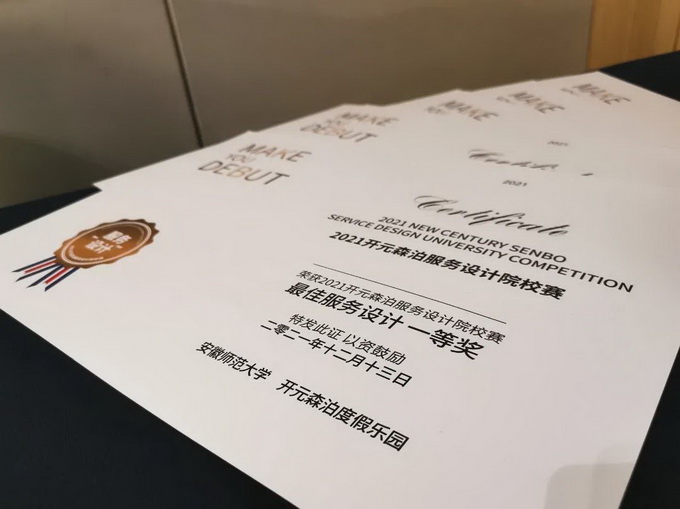 MAKE
MAKE
MAKE
YOU
DEBUT
2021
MAKE
YOU
DEBUT
2021
Certificate
2021 NEW CENTURY SENBO
SERVICE DESIGN UNIVERSITY COMPETITION
2021开元森泊服务设计院校赛
服务
设计
荣获2021开元森泊服务设计院校赛
最佳服务设计 一等奖
特发此证 以资鼓励
二零二一年十二月十三日
安徽师范大学 开元森泊度假乐园